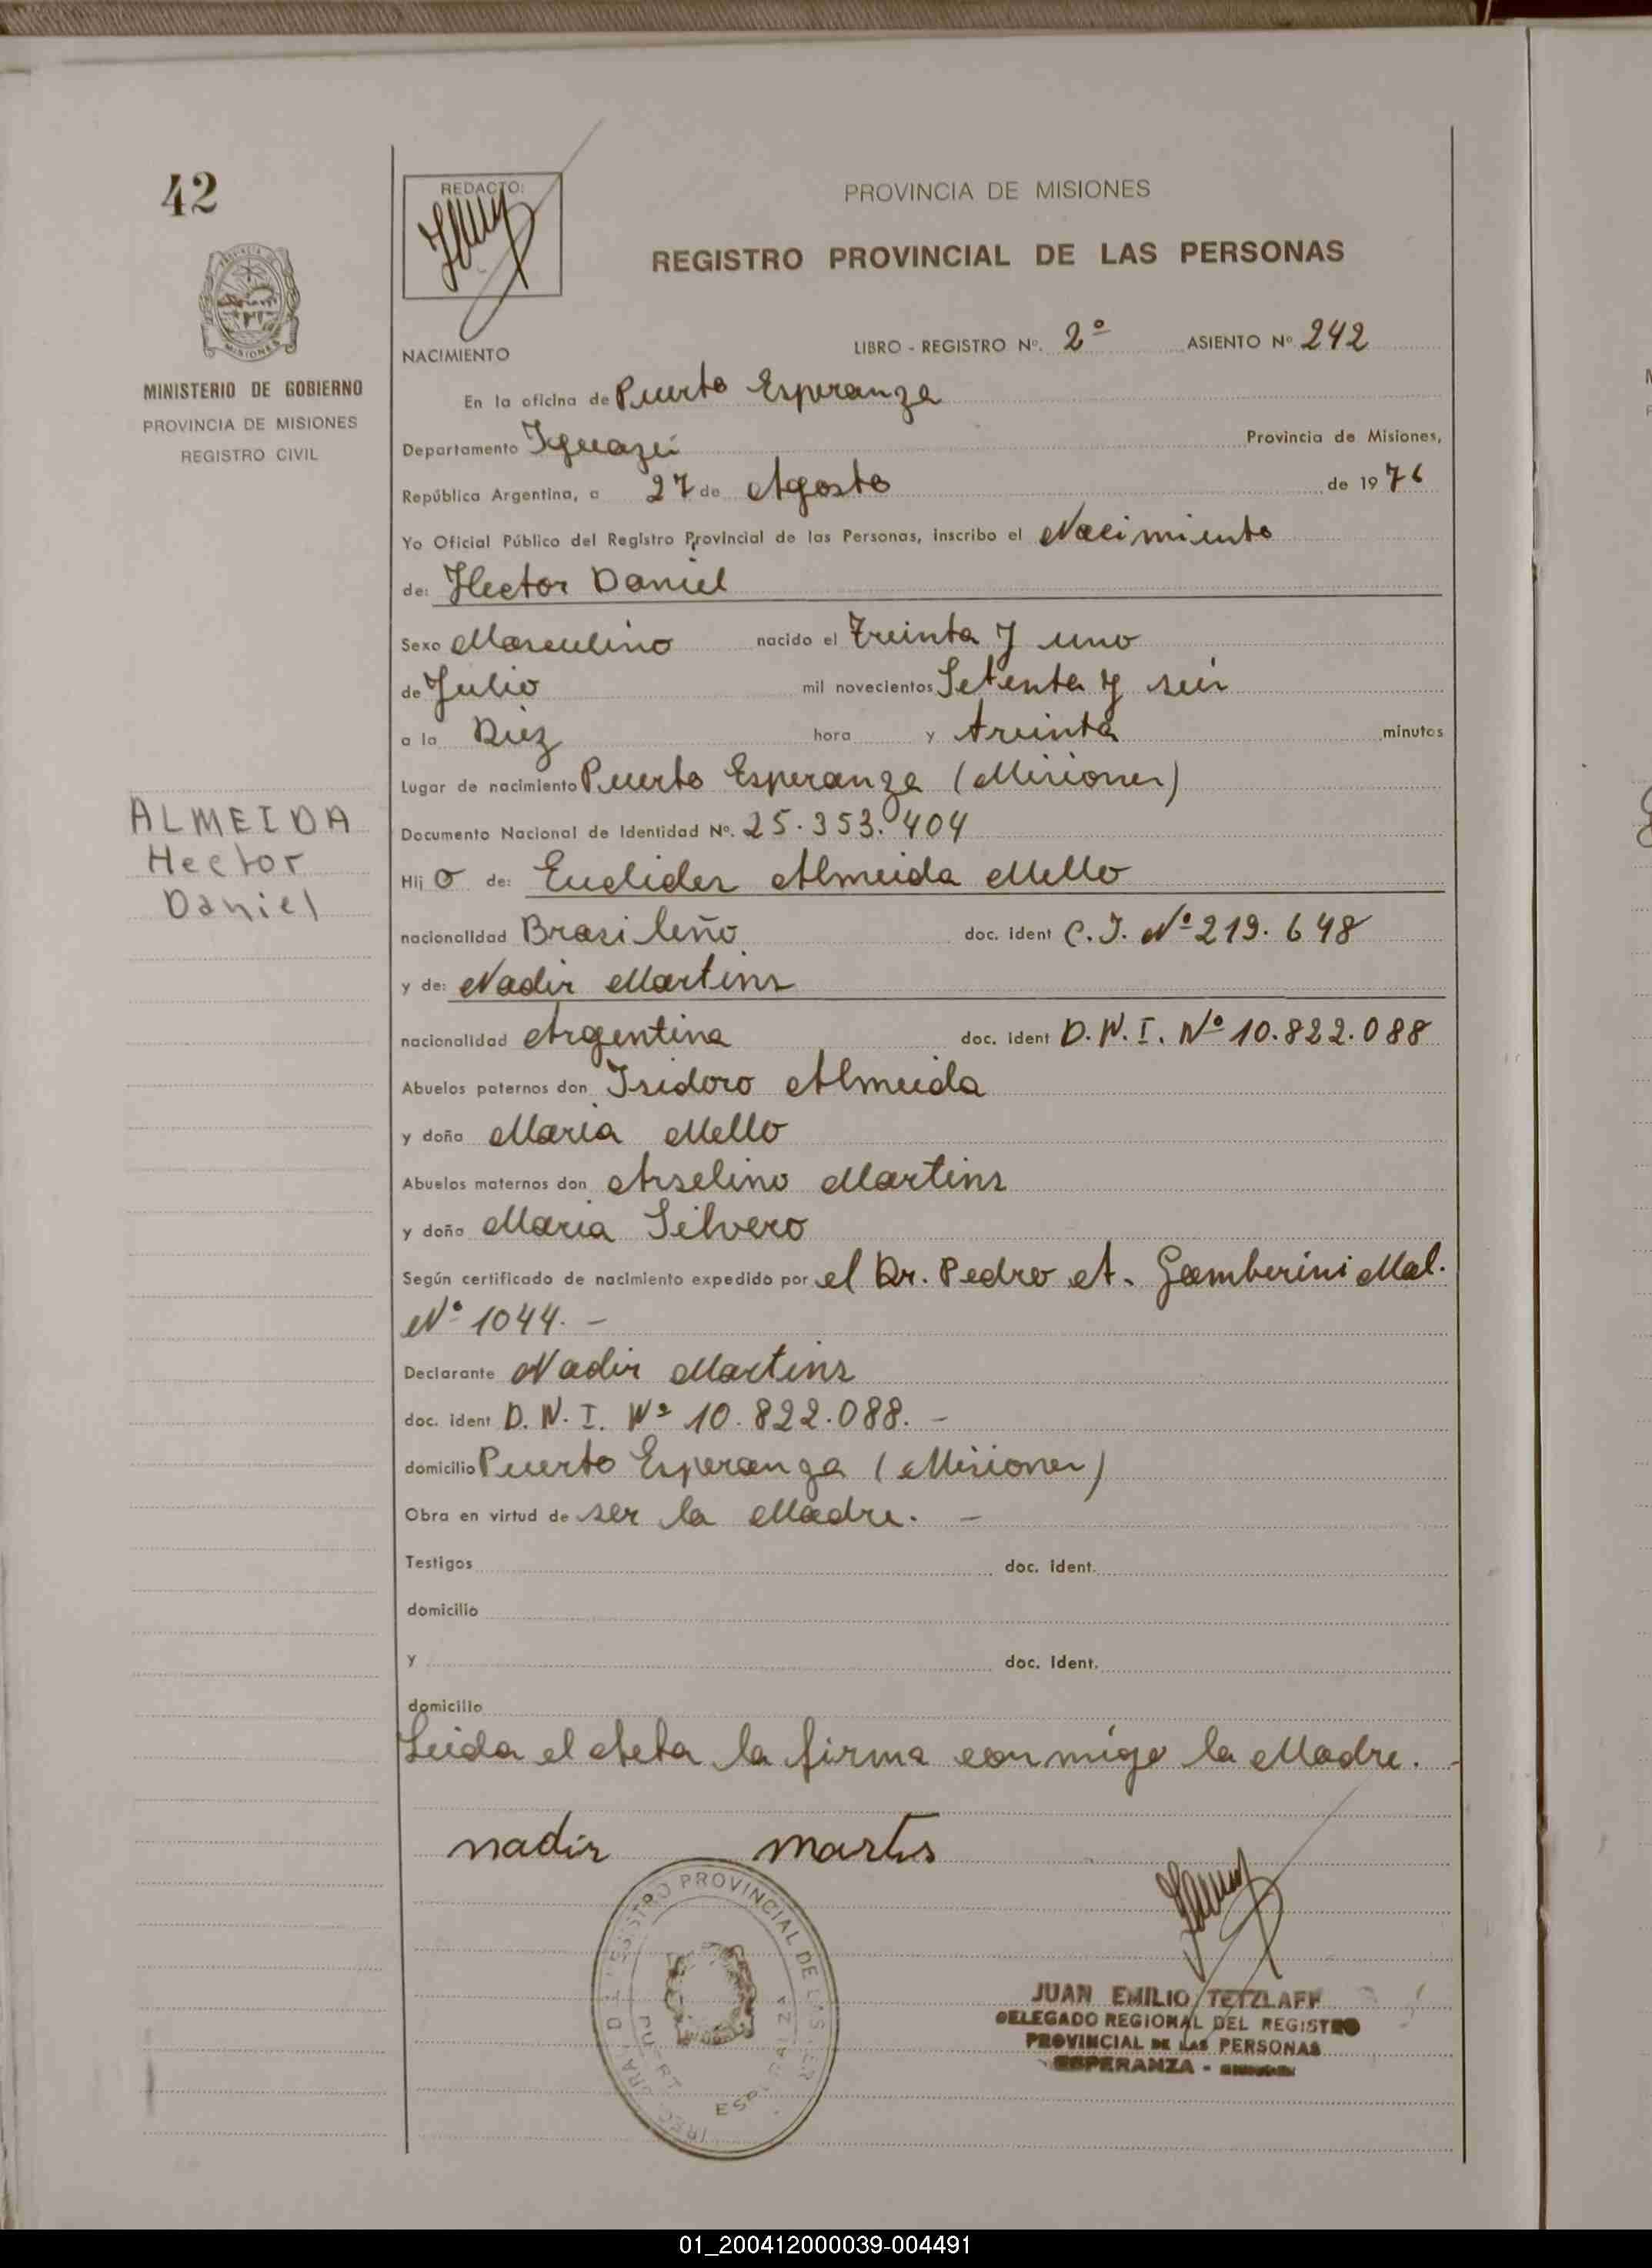 42
REDACTO:
PROVINCIA DE MISIONES
REGISTRO PROVINCIAL DE LAS PERSONAS
MISIONES
MINISTERIO DE GOBIERNO
PROVINCIA DE MISIONES
REGISTRO CIVIL
NACIMIENTO
LIBRO - REGISTRO Nº. 2º ASIENTO Nº 242
En la oficina de Puerto Esperanza
Departamento Iguazú Provincia de Misiones,
República Argentina, a 27 de Agosto de 1976
Yo Oficial Público del Registro Provincial de las Personas, inscribo el Nacimiento
de: Hector Daniel
Sexo Masculino nacido el Treinta y uno
de Julio mil novecientos Setenta y seis
a la Diez hora y treinta minutos
Lugar de nacimiento Puerto Esperanza (Misiones)
ALMEIDA
Hector
Daniel
Documento Nacional de Identidad Nº. 25.353.404
Hij o de: Euclides Almeida Mello
nacionalidad Brasileño doc. ident C.I. Nº 219.648
y de: Nadir Martins
nacionalidad Argentina doc. ident D.N.I. Nº 10.822.088
Abuelos paternos don Isidoro Almeida
y doña Maria Mello
Abuelos maternos don Arselino Martins
y doña Maria Silvero
Según certificado de nacimiento expedido por el Dr. Pedro A. Gamberini Mal.
Nº 1044. -
Declarante Nadir Martins
doc. ident D.N.I. Nº 10.822.088. -
domicilio Puerto Esperanza (Misiones)
Obra en virtud de ser la Madre. -
Testigos doc. ident.
domicilio
y doc. ident.
domicilio
Leida el Acta la firma conmigo la Madre. -
nadir martis
REGISTRO PROVINCIAL DE LAS PER
JUAN EMILIO TETZLAFF
DELEGADO REGIONAL DEL REGISTRO
PROVINCIAL DE LAS PERSONAS
ESPERANZA -
01_200412000039-004491